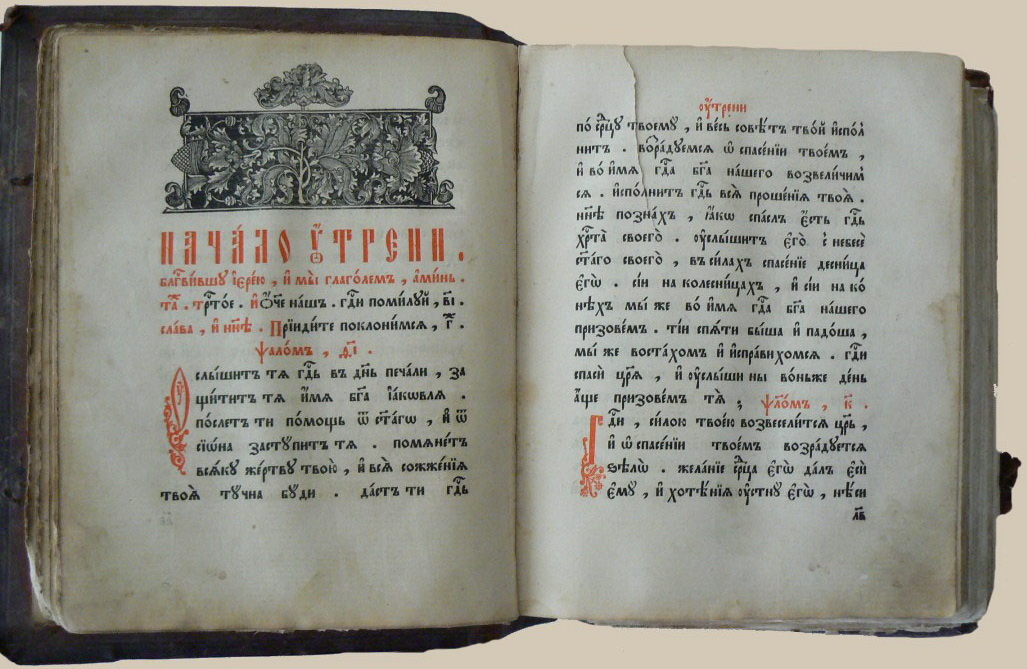 НАЧА́ЛО ОУ҆́ТРЕНИ .
Блгⷭ҇ви́вшу і҆ере́ю , и҆ мы̀ глаго́лемъ , а҆ми́нь .
Та́ . трⷭ҇то́е . и҆ Ѻ҆́ч҃е нашъ . гдⷭ҇и поми́луй , в҃і .
сла́ва , и҆ нн҃ѣ . Прїиди́те поклони́мся , г҃ .
Ѱало́мъ , ѳ҃і .
Оу҆слы́шитъ тя гдⷭ҇ь въ дн҃ь печа́ли , за
щи́титъ тя и҆́мя бг҃а і҆а́ковля .
по́слетъ ти по́мощь ѿ ст҃а́гѡ , и҆ ѿ
сїѡ́на засту́питъ тя . помяне́тъ
вся́ку же́ртву твою̀ , и҆ вся̀ сожже́нїя
твоя̀ ту́чна буди . да́стъ ти гдⷭ҇ь
оу҆́трени
по́ срⷣцу твоему̀ , и҆ ве́сь совѣ́тъ тво́й и҆спо́л
нитъ . возра́дуемся ѡ҆ спасе́нїи твое́мъ ,
и҆ во́ и҆мя гдⷭ҇а бг҃а на́шего возвели́чим
ся . и҆спо́лнитъ гдⷭ҇ь вся̀ проше́нїя твоя̀ .
нн҃ѣ позна́хъ , ꙗ҆́кѡ спа́слъ є҆́сть гдⷭ҇ь
хрⷭ҇та̀ своего̀ . оу҆слы́шитъ є҆го̀ с небесѐ
ст҃а́го своего̀ , въ си́лахъ спасе́нїе десни́ца
є҆гѡ̀ . сі́и на колесни́цахъ , и҆ сі́и на ко́
нѣхъ мы́ же во́ и҆мя гдⷭ҇а бг҃а на́шего
призове́мъ . ті́и спя́ти бы́ша и҆ падо́ша ,
мы́ же воста́хомъ и҆ и҆спра́вихомся . гдⷭ҇и
спасѝ цр҃я̀ , и҆ оу҆слы́ши ны̀ во́ньже де́нь
а҆́ще призове́мъ тя̀ ; Ѱало́мъ , к҃ .
Гдⷭ҇и , си́лою твое́ю возвесели́тся цр҃ь ,
и҆ ѡ҆ спасе́нїи твое́мъ возра́дуется
ѕѣлѡ̀ . жела́нїе срⷣца є҆гѡ̀ да́лъ є҆сѝ
є҆му̀ , и҆ хотѣ́нїя оу҆стну̀ є҆гѡ̀ , нѣ́си